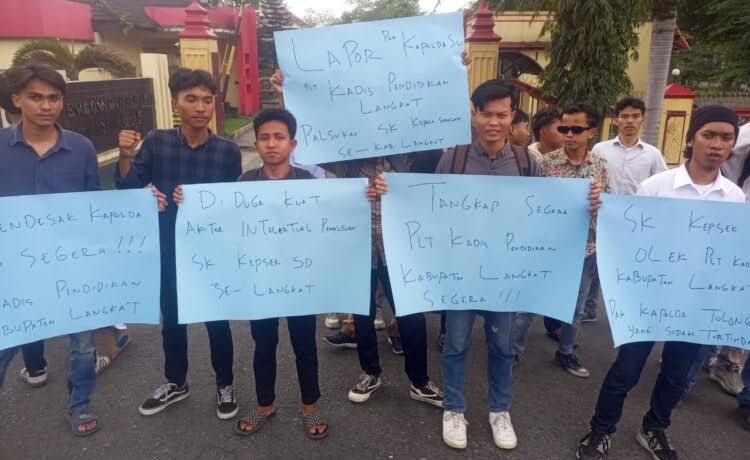 LAPOR PAK KAPOLDASU
PLT KADIS PENDIDIKAN
LANGKAT
PALSUKAN SK KEPALA SEKOLAH
SE-KAB LANGKAT
ENDESAK KAPOLDA
SEGERA!!!
KADIS PENDIDIKAN
KABUPATEN LANGKAT
DI DUGA KUAT
AKTOR INTOLEKTUAL PEMALSUAN
SK KEPSEK SD
SE-LANGKAT
TANGKAP SEGERA
PLT KADIS PENDIDIKAN
KABUPATEN LANGKAT
SEGERA!!!
SK KEPSEK
OLEK PLT KADI
KABUPATEN LANGKA
PAK KAPOLDA TOLONG
YANG SUDAH TERTINDA